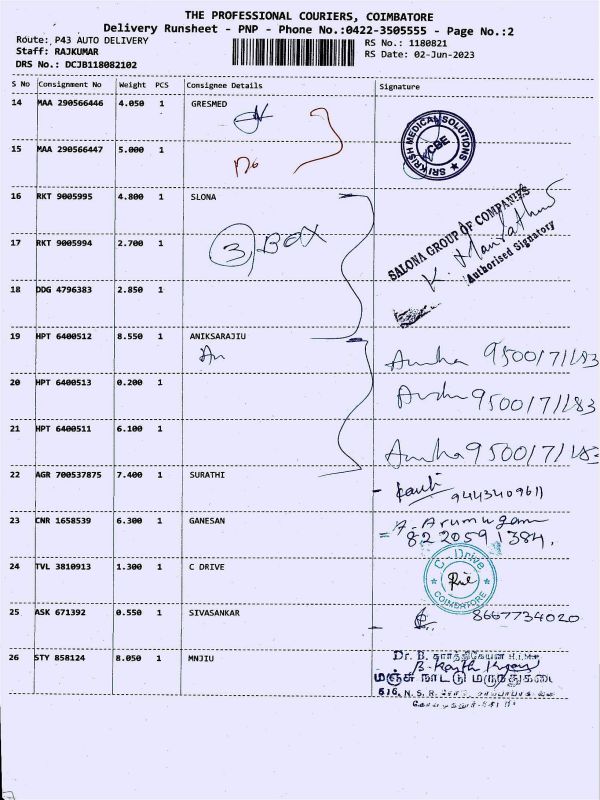 THE PROFESSIONAL COURIERS, COIMBATORE
Delivery Runsheet - PNP - Phone No.:0422-3505555 - Page No.:2
Route: P43 AUTO DELIVERY
RS No.: 1180821
Staff: RAJKUMAR
RS Date: 02-Jun-2023
DRS No.: DCJB118082102
S No Consignment No Weight PCS Consignee Details Signature
14 MAA 290566446 4.050 1 GRESMED
SRI KRISH MEDICAL SOLUTIONS
CBE
15 MAA 290566447 5.000 1
16 RKT 9005995 4.800 1 SLONA
SALONA GROUP OF COMPANIES
K.
Authorised Signatory
17 RKT 9005994 2.700 1
3) BOX
18 DDG 4796383 2.850 1
19 HPT 6400512 8.550 1 ANIKSARAJIU
9500171183
20 HPT 6400513 0.200 1
9500171183
21 HPT 6400511 6.100 1
22 AGR 700537875 7.400 1 SURATHI
9443409611
23 CNR 1658539 6.300 1 GANESAN
A. Arumugam
8220591384.
24 TVL 3810913 1.300 1 C DRIVE
C. Drive
COIMBATORE
25 ASK 671392 0.550 1 SIVASANKAR
8667734020
26 STY 858124 8.050 1 MNJIU
Dr. B. கார்த்திகேயன் H.I.M.P.
மஞ்சு நாட்டு மருந்துகடை
516, N. S. R. ரோடு,